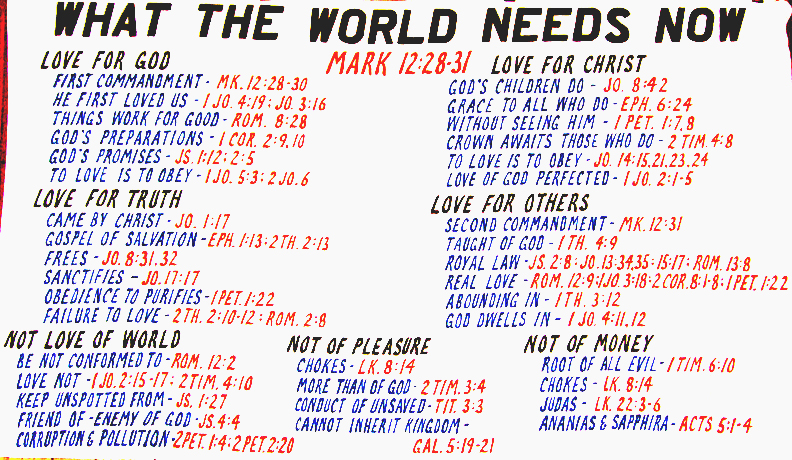 WHAT THE WORLD NEEDS NOW
MARK 12:28-31
LOVE FOR GOD
FIRST COMMANDMENT - MK. 12:28-30
HE FIRST LOVED US - I JO. 4:19; JO. 3:16
THINGS WORK FOR GOOD - ROM. 8:28
GOD'S PREPARATIONS - I COR. 2:9,10
GOD'S PROMISES - JS. 1:12; 2:5
TO LOVE IS TO OBEY - I JO. 5:3; 2 JO. 6
LOVE FOR CHRIST
GOD'S CHILDREN DO - JO. 8:42
GRACE TO ALL WHO DO - EPH. 6:24
WITHOUT SEEING HIM - I PET. 1:7,8
CROWN AWAITS THOSE WHO DO - 2 TIM. 4:8
TO LOVE IS TO OBEY - JO. 14:15,21,23,24
LOVE OF GOD PERFECTED - I JO. 2:1-5
LOVE FOR TRUTH
CAME BY CHRIST - JO. 1:17
GOSPEL OF SALVATION - EPH. 1:13; 2 TH. 2:13
FREES - JO. 8:31,32
SANCTIFIES - JO. 17:17
OBEDIENCE TO PURIFIES - I PET. 1:22
FAILURE TO LOVE - 2 TH. 2:10-12; ROM. 2:8
LOVE FOR OTHERS
SECOND COMMANDMENT - MK. 12:31
TAUGHT OF GOD - I TH. 4:9
ROYAL LAW - JS. 2:8; JO. 13:34,35; 15:17; ROM. 13:8
REAL LOVE - ROM. 12:9; I JO. 3:18; 2 COR. 8:1-8; I PET. 1:22
ABOUNDING IN - I TH. 3:12
GOD DWELLS IN - I JO. 4:11,12
NOT LOVE OF WORLD
BE NOT CONFORMED TO - ROM. 12:2
LOVE NOT - I JO. 2:15-17; 2 TIM. 4:10
KEEP UNSPOTTED FROM - JS. 1:27
FRIEND OF - ENEMY OF GOD - JS. 4:4
CORRUPTION & POLLUTION - 2 PET. 1:4; 2 PET. 2:20
NOT OF PLEASURE
CHOKES - LK. 8:14
MORE THAN OF GOD - 2 TIM. 3:4
CONDUCT OF UNSAVED - TIT. 3:3
CANNOT INHERIT KINGDOM -
GAL. 5:19-21
NOT OF MONEY
ROOT OF ALL EVIL - I TIM. 6:10
CHOKES - LK. 8:14
JUDAS - LK. 22:3-6
ANANIAS & SAPPHIRA - ACTS 5:1-4